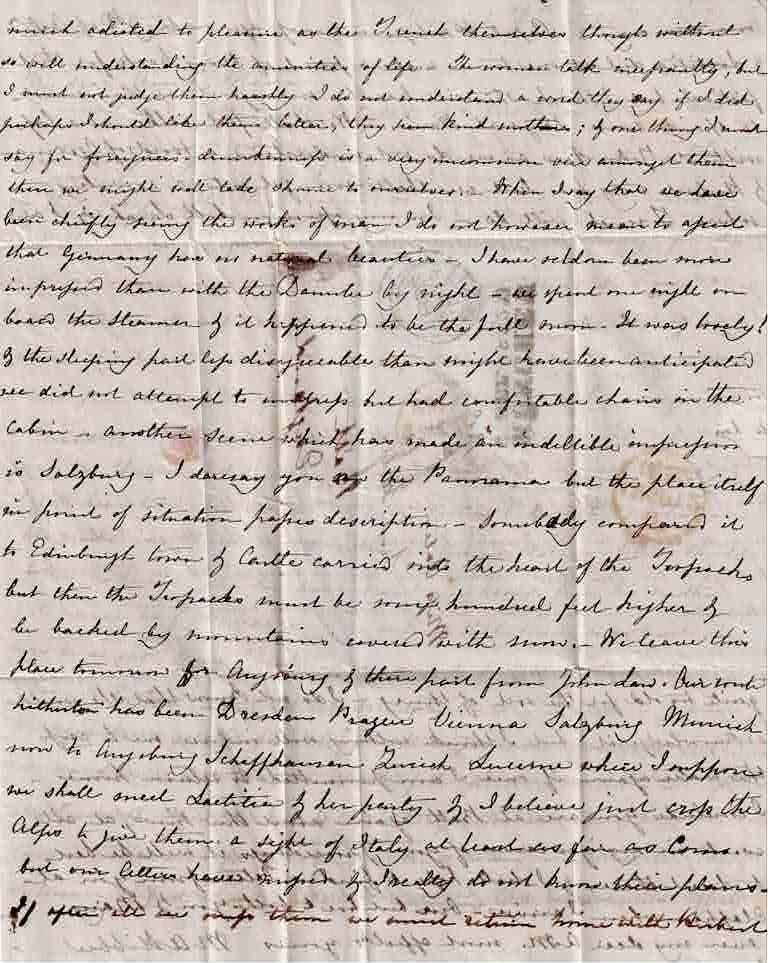 much adicted to pleasure as the French themselves though without
so well understanding the amenities of life - The women talk incessantly, but
I must not judge them harshly I do not understand a word they say if I did
perhaps I should like them better, they seem kind mothers; & one thing I must
say for foreigners - drunkenness is a very uncommon vice amongst them
there we might well take shame to ourselves. When I say that we have
been chiefly seeing the works of man I do not however mean to assert
that Germany has no natural beauties - I have seldom been more
impressed than with the Danube by night - we spent one night on
board the steamer & it happened to be the full moon - It was lovely!
& the sleeping part less disagreeable than might have been anticipated
we did not attempt to undress but had comfortable chairs in the
Cabin - another scene which has made an indellible impression
is Salzburg - I daresay you saw the Panorama but the place itself
in point of situation passes description - Somebody compared it
to Edinburgh town & Castle carried into the heart of the Trosacks
but then the Trosacks must be some hundred feet higher &
be backed by mountains covered with snow. - We leave this
place tomorrow for Augsburg & there part from John Law. Our route
hitherto has been Dresden Prague Vienna Salzburg Munich
now to Augsburg Schaffhausen Zurich Lucerne where I suppose
we shall meet Laetitia & her party & I believe just cross the
Alps to give them a sight of Italy at least as far as Como -
but our letters have missed & I really do not know their plans -
If after all we miss them we must return home with Herbert